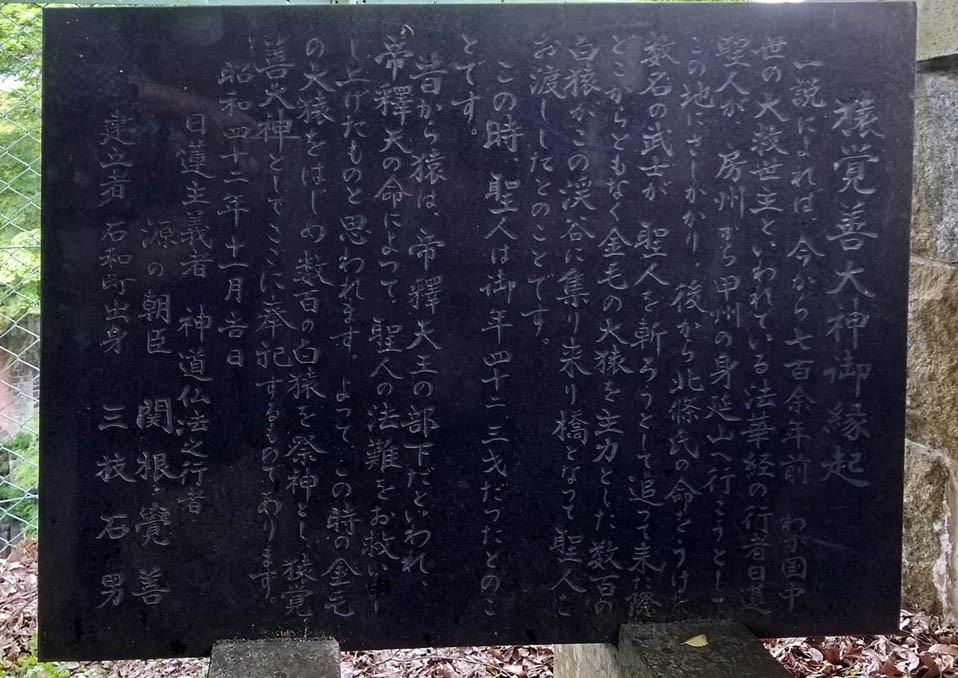 猿覚善大神御縁起
一説によれば、今から七百余年前 わが国中
世の大救世主といわれている法華経の行者日蓮
聖人が、房州から甲州の身延山へ行こうとし
この地にさしかかり、後から北條氏の命をうけ
数名の武士が 聖人を斬ろうとして追って来た際
どこからともなく金毛の大猿を主力とした数百の
白猿がこの渓谷に集り来り橋となって聖人を
お渡ししたとのことです。
この時、聖人は御年四十二三才だったとのこ
とです。
昔から猿は、帝釋天王の部下だといわれ、
帝釋天の命によって、聖人の法難をお救い申
し上げたものと思われます。よって、この時の金毛
の大猿をはじめ数百の白猿を祭神とし、猿覚
善大神としてここに奉祀するものであります。
昭和四十二年十一月吉日
日蓮主義者 神道仏法之行者
源の朝臣 関根覺善
建立者 石和町出身 三枝石男